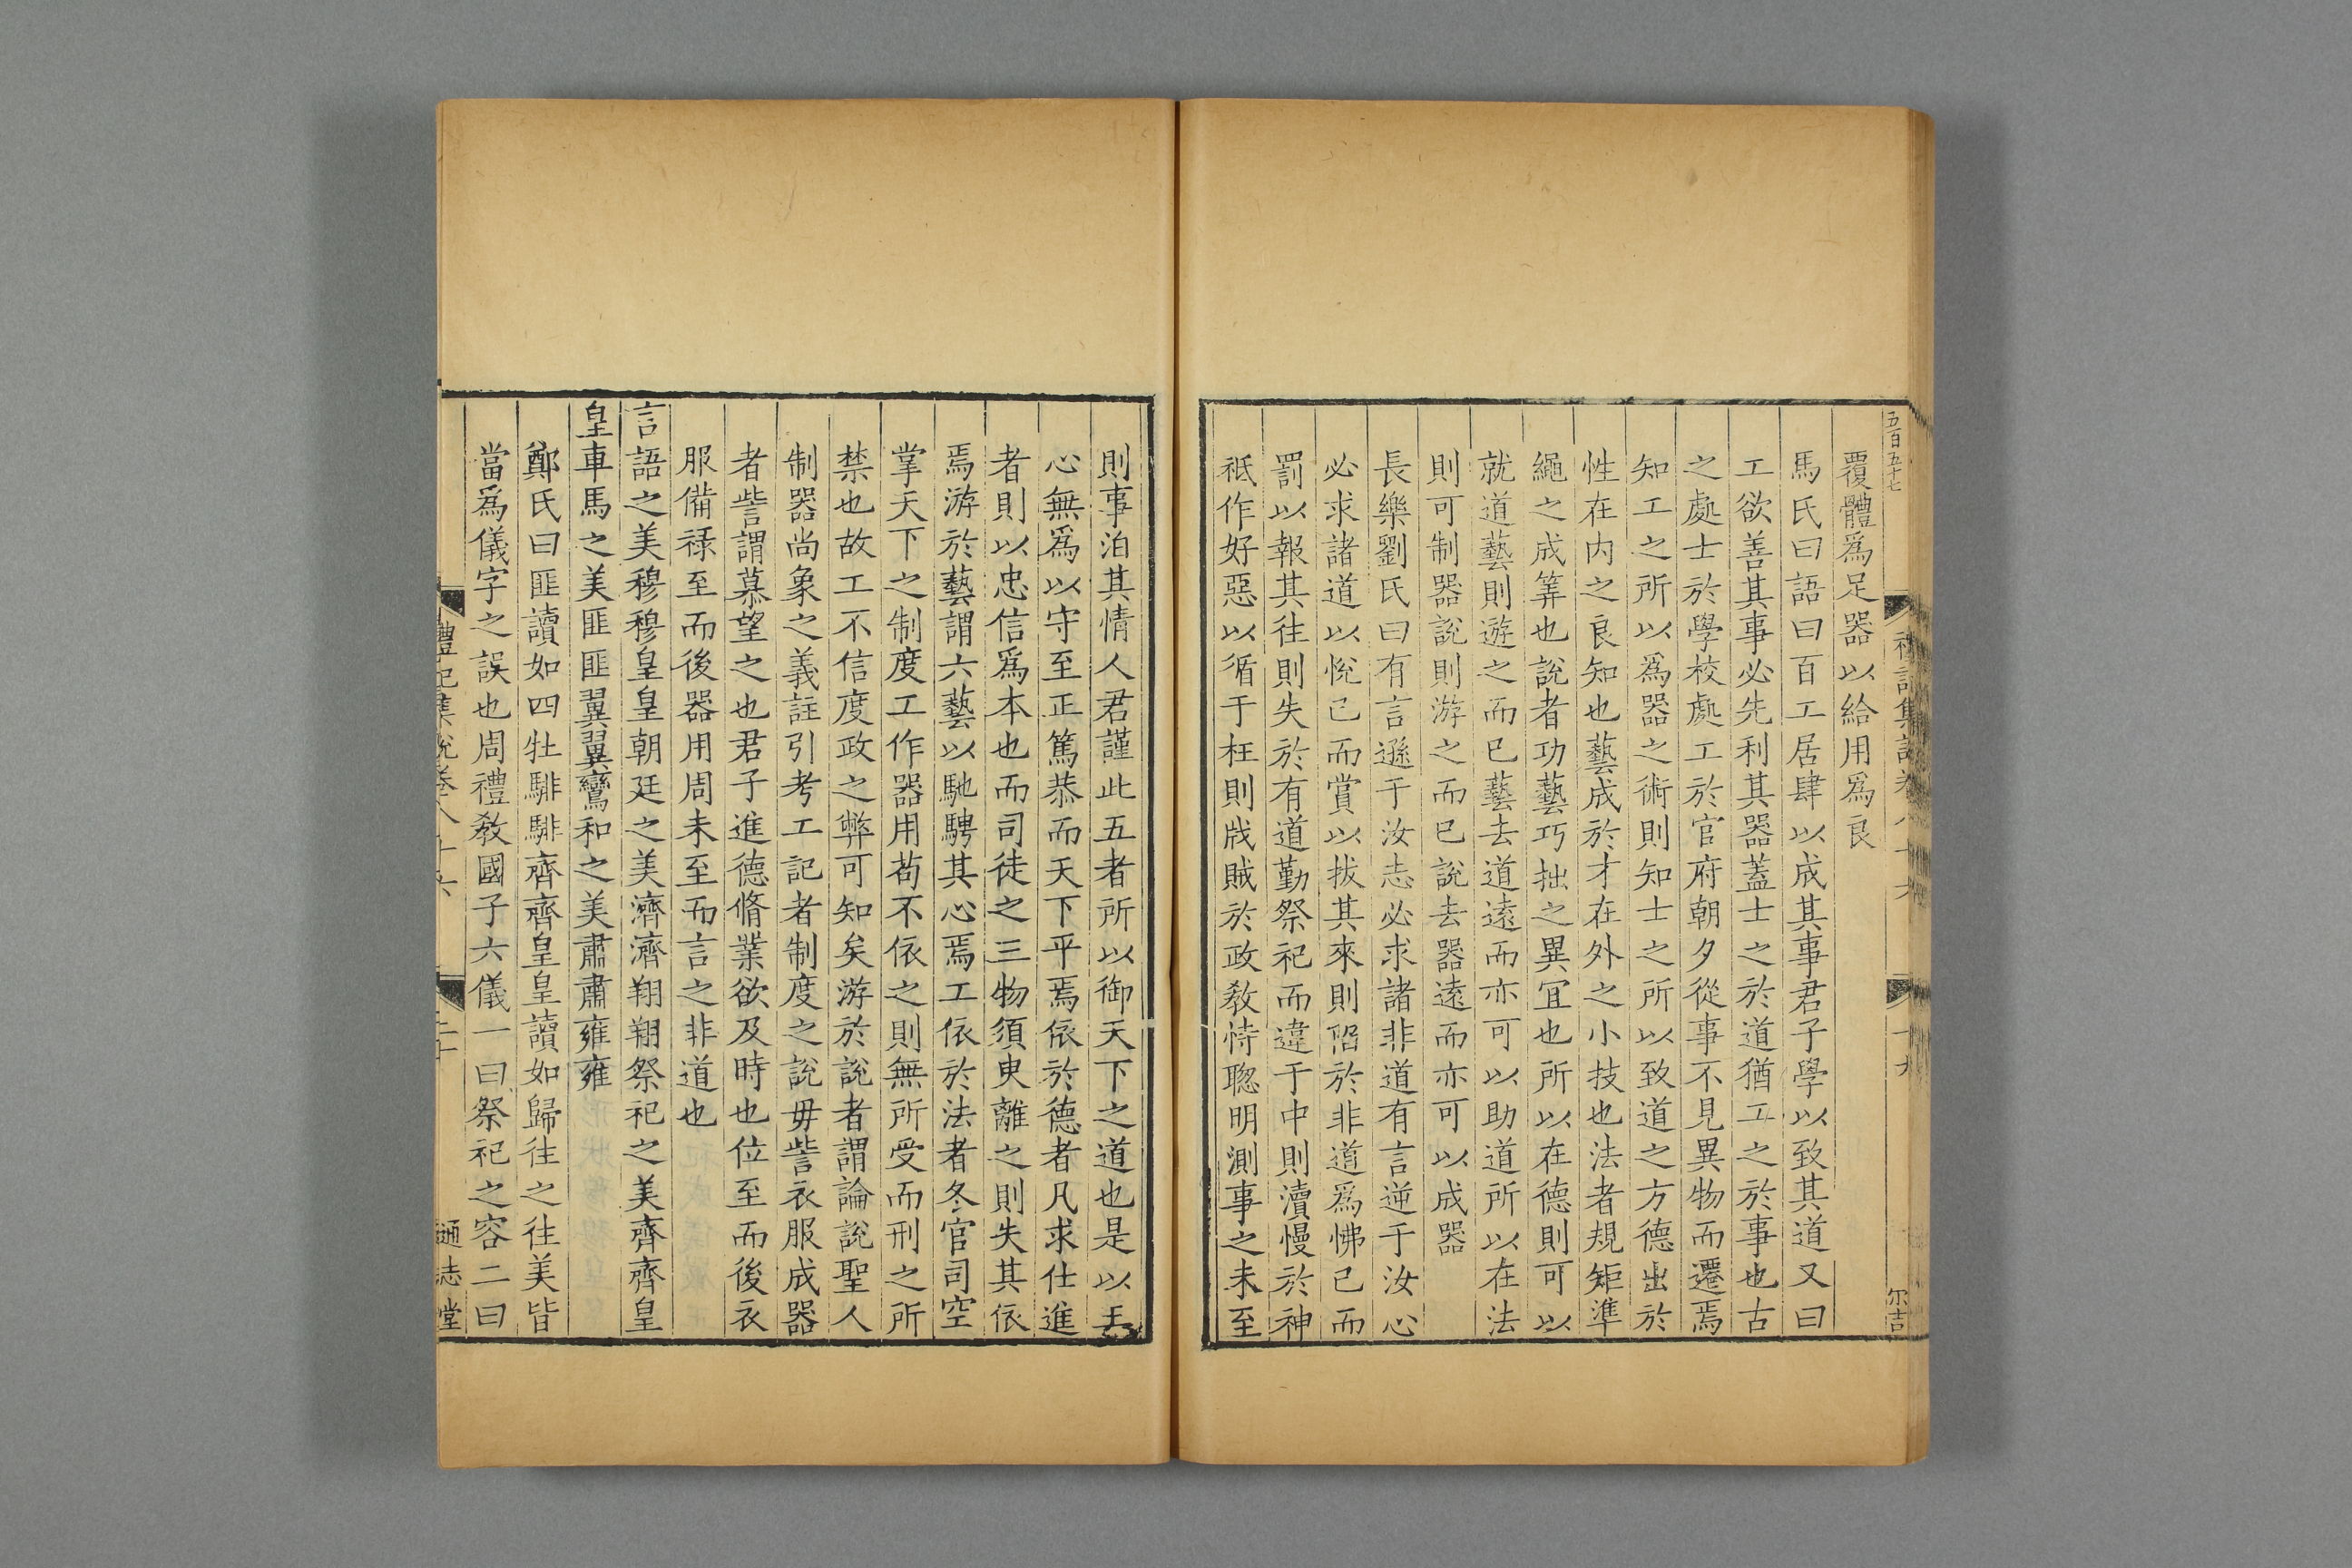 五百五十七
禮記集說卷八十六
十九
尔吉
覆體爲足器以給用爲良
馬氏曰語曰百工居肆以成其事君子學以致其道又曰
工欲善其事必先利其器蓋士之於道猶工之於事也古
之處士於學校處工於官府朝夕從事不見異物而遷焉
知工之所以爲器之術則知士之所以致道之方德出於
性在内之良知也藝成於才在外之小技也法者規矩準
繩之成筭也說者功藝巧拙之異宜也所以在德則可以
就道藝則遊之而已藝去道遠而亦可以助道所以在法
則可制器說則游之而已說去器遠而亦可以成器
長樂劉氏曰有言遜于汝志必求諸非道有言逆于汝心
必求諸道以悅己而賞以拔其來則謟於非道爲怫己而
罰以報其往則失於有道勤祭祀而違于中則瀆慢於神
祗作好惡以循于枉則戕賊於政敎恃聦明測事之未至
則事泊其情人君謹此五者所以御天下之道也是以王
心無爲以守至正篤恭而天下平焉依於德者凡求仕進
者則以忠信爲本也而司徒之三物須臾離之則失其依
焉游於藝謂六藝以馳騁其心焉工依於法者冬官司空
掌天下之制度工作器用茍不依之則無所受而刑之所
禁也故工不信度政之弊可知矣游於說者謂論說聖人
制器尚象之義註引考工記者制度之說毋訾衣服成器
者訾謂慕望之也君子進德脩業欲及時也位至而後衣
服備祿至而後器用周未至而言之非道也
言語之美穆穆皇皇朝廷之美濟濟翔翔祭祀之美齊齊皇
皇車馬之美匪匪翼翼鸞和之美肅肅雍雍
鄭氏曰匪讀如四牡騑騑齊齊皇皇讀如歸往之往美皆
當爲儀字之誤也周禮敎國子六儀一曰祭祀之容二曰
禮記集說卷八十六
二十
通志堂